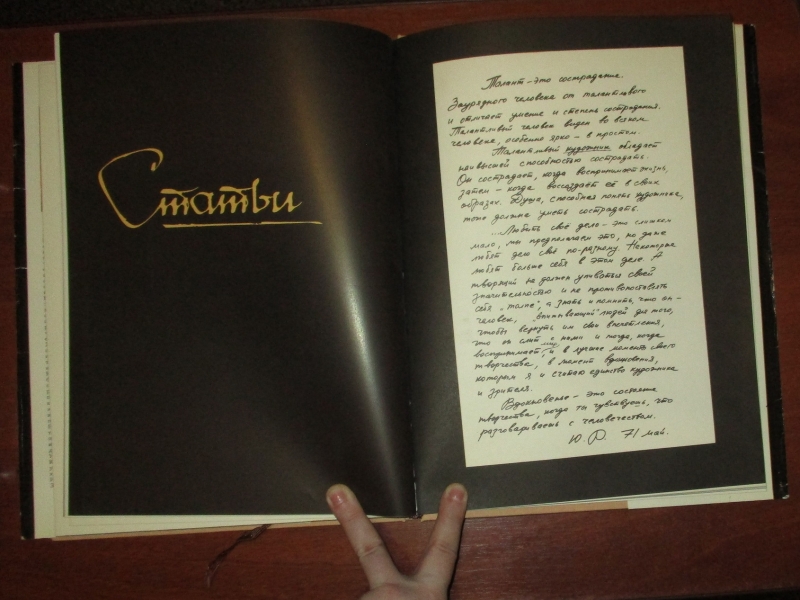 Статьи
Талант – это сострадание.
Заурядного человека от талантливого
и отличает умение и степень сострадания.
Талантливый человек виден во всяком
человеке, особенно ярко – в простом.
Талантливый художник обладает
наивысшей способностью сострадать.
Он сострадает, когда воспринимает жизнь,
затем – когда воссоздает её в своих
образах. Душа, способная понять художника,
тоже должна уметь сострадать.
...Любить своё дело – это слишком
мало, мы предполагаем это, но даже
любят дело своё по-разному. Некоторые
любят больше себя в этом деле. А
творящий не должен упиваться своей
значительностью и не противопоставлять
себя "толпе", а знать и помнить, что он –
человек, "впитывающий" людей для того,
чтобы вернуть им свои впечатления,
что он слит с ними и тогда, когда
воспринимает мир, и в лучшие моменты своего
творчества, в момент вдохновения,
которым я и считаю единство художника
и зрителя.
Вдохновение – это состояние
творчества, когда ты чувствуешь, что
разговариваешь с человечеством.
Ю. Р. 71 май.